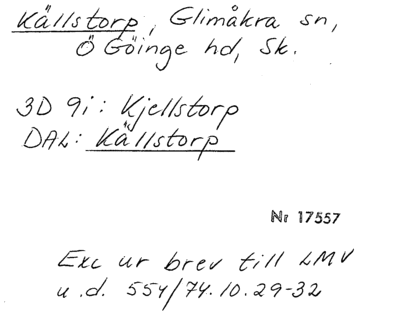 Källstorp, Glimåkra sn,
Ö Göinge hd, Sk.
3D 9i: Kjellstorp
DAL: Källstorp
Nr 17557
Exc ur brev till LMV
u.d. 554/74.10.29-32